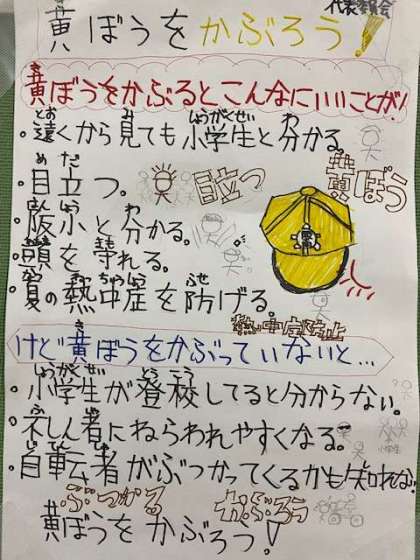 代表委員会
黄ぼうをかぶろう!
黄ぼうをかぶるとこんなにいいことが!
・遠くから見ても小学生と分かる。
・目立つ。 目立つ 黄ぼう
・阪小と分かる。
・頭を守れる。
・夏の熱中症を防げる。
熱中症防止
けど黄ぼうをかぶっていないと…
・小学生が登校してると分からない。
・不しん者にねらわれやすくなる。
小学生
・自転車がぶつかってくるかも知れない
ぶつかる かぶろう
黄ぼうをかぶろう!